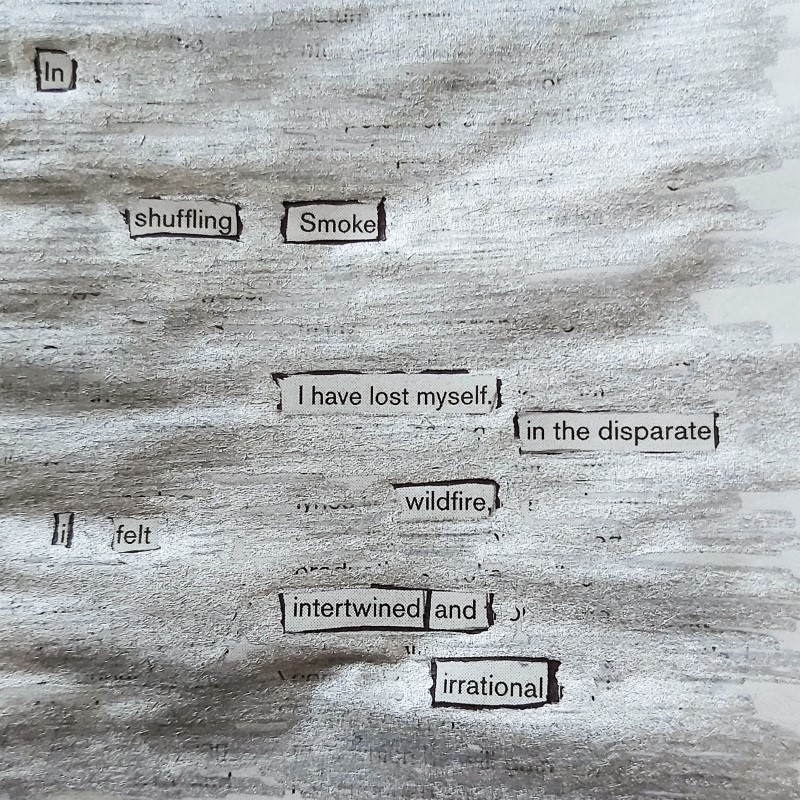 In
shuffling Smoke
I have lost myself.
in the disparate
wildfire,
i felt
intertwined and
irrational